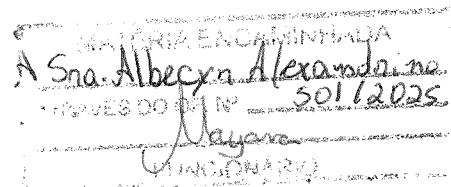 MATÉRIA ENCAMINHADA
A Sna. Albecyn Alexandrino
ATRAVÉS DO OF. Nº 501/2025
Mayara
FUNCIONÁRIO